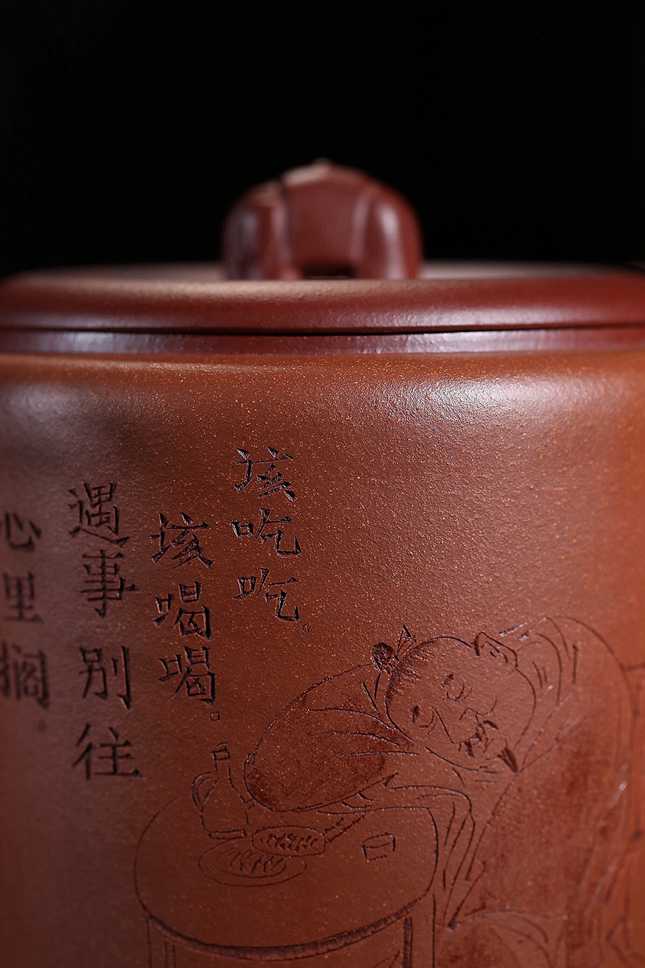 该吃吃。
该喝喝。
遇事别往
心里搁。